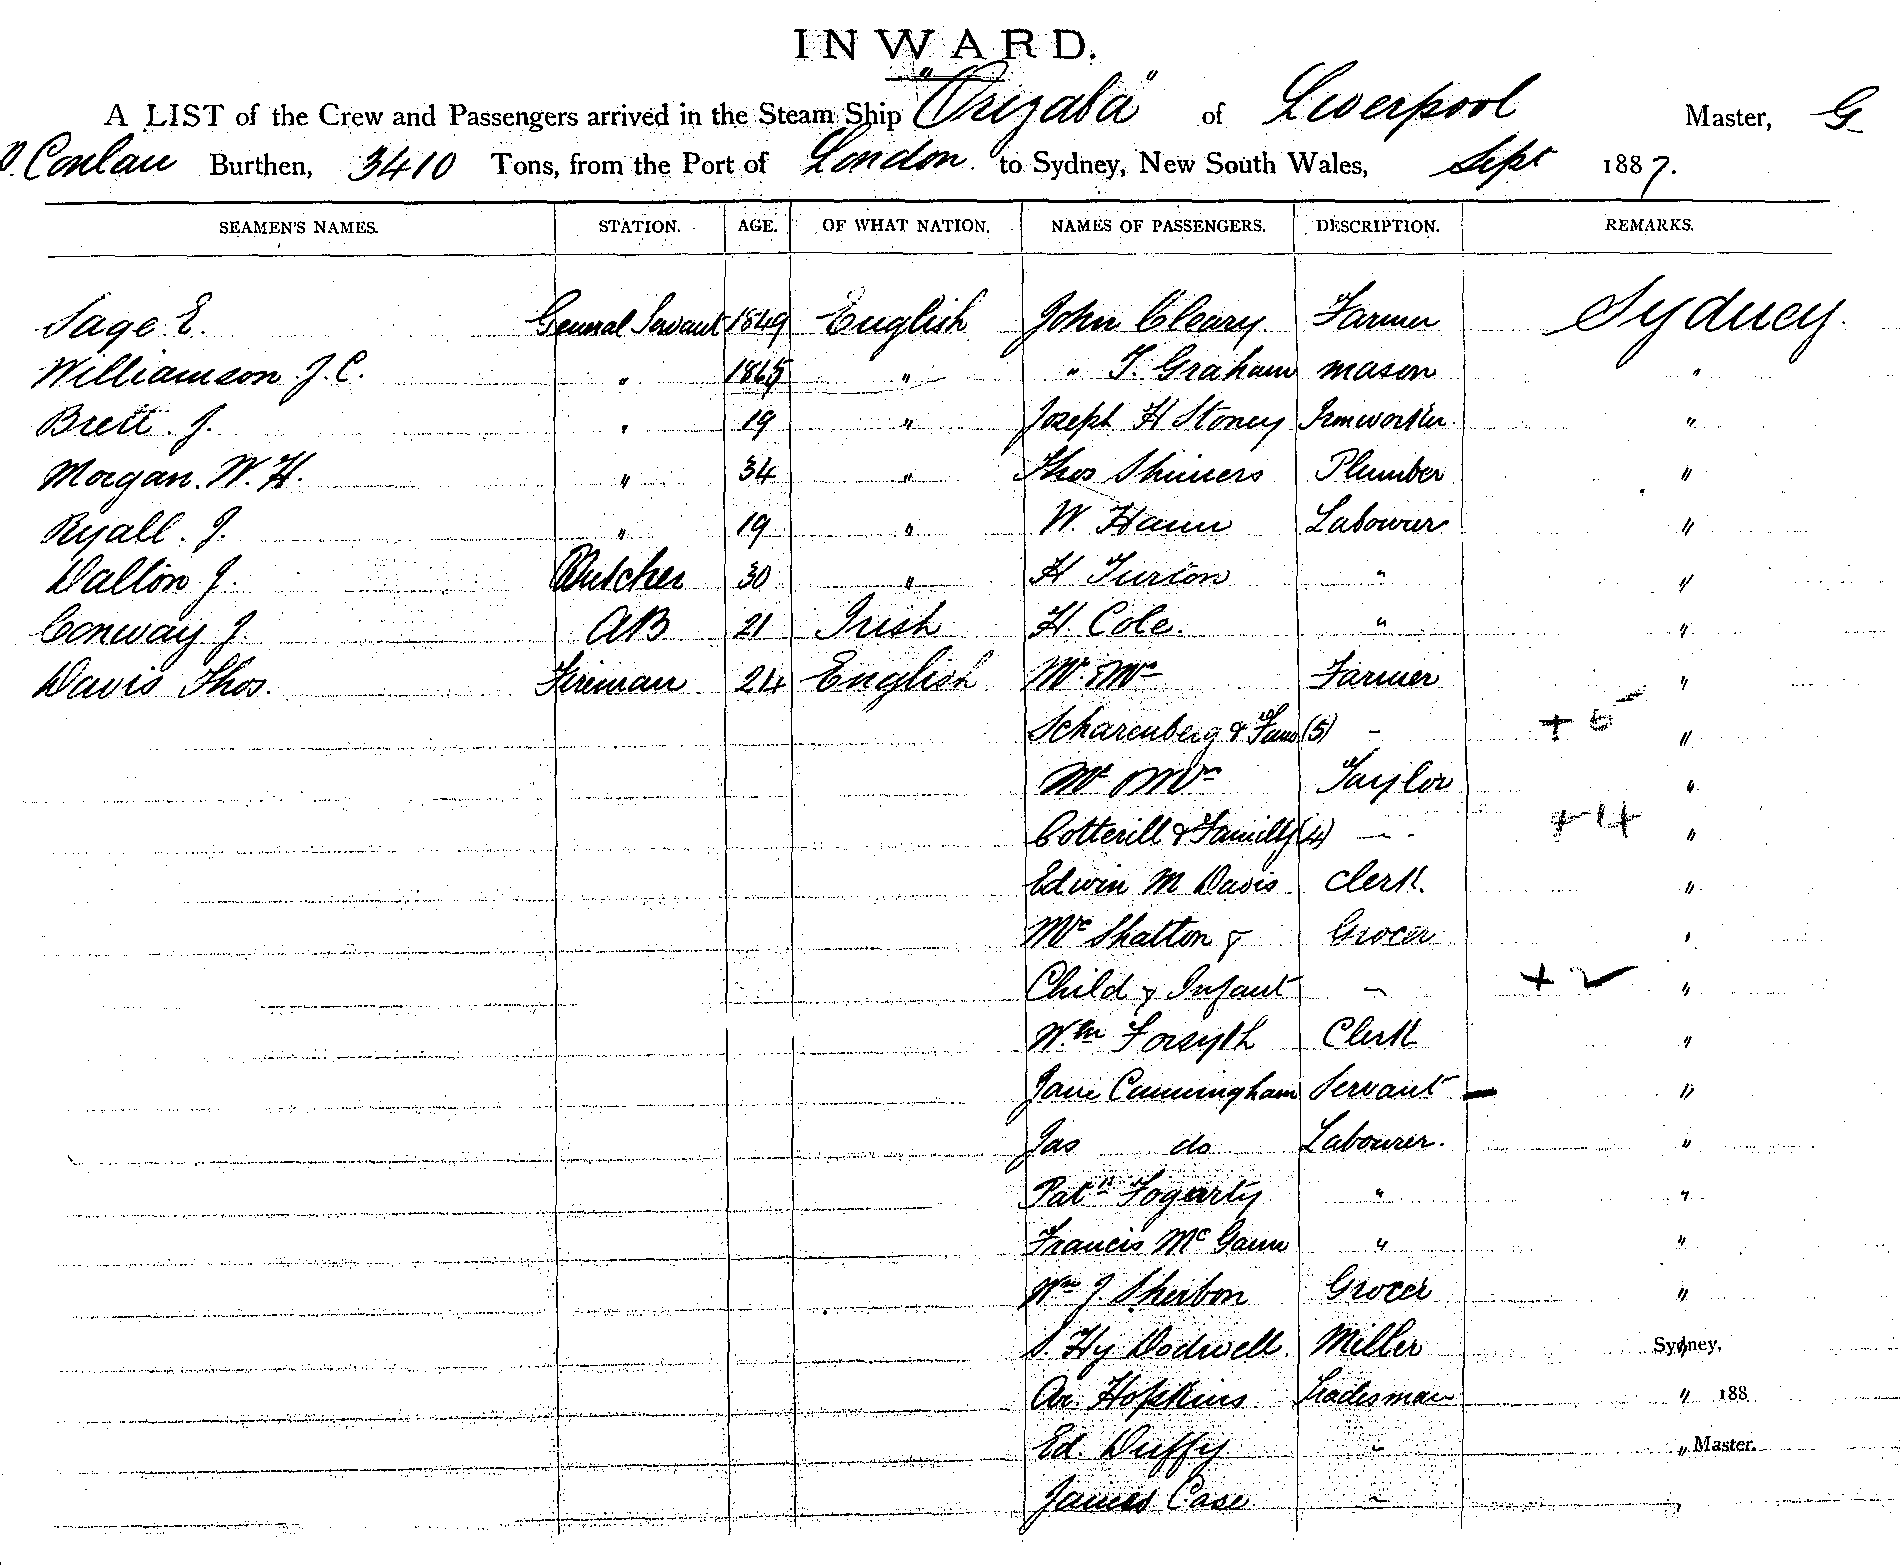 INWARD.
A LIST of the Crew and Passengers arrived in the Steam Ship "Orizaba" of Liverpool Master, G
D. Conlan Burthen, 3410 Tons, from the Port of London to Sydney, New South Wales, Sept 1887.
SEAMEN'S NAMES. STATION. AGE. OF WHAT NATION. NAMES OF PASSENGERS. DESCRIPTION. REMARKS.
Sage E. General Servant 1849 English John Cleary Farmer Sydney.
Williamson J. C. " 1865 " " T. Graham mason "
Brett. J. " 19 " Joseph H Stoney Ironworker "
Morgan. W. H. " 34 " Thos Shiners Plumber "
Ryall. J. " 19 " W. Hann Labourer "
Dalton J. Butcher 30 " H Turton " "
Conway J. AB 21 Irish H. Cole. " "
Davis Thos. Fireman 24 English Mr & Mrs Farmer "
Scharenberg & Fam (5) - + 5 "
Mr & Mrs Taylor "
Cotterill & Family (4) - +4 "
Edwin M Davis Clerk. "
Mrs Shatton & Grocer "
Child & Infant - + 2 "
Wm Forsyth Clerk "
Jane Cunningham Servant - "
Jas do Labourer. "
Patk Fogarty " "
Francis McGann " "
Wm J Sherbon Grocer "
S. Hy Dodwell. Miller Sydney,
Ar. Hopkins Tradesman " 188
Ed. Duffy " " Master.
James Case " "